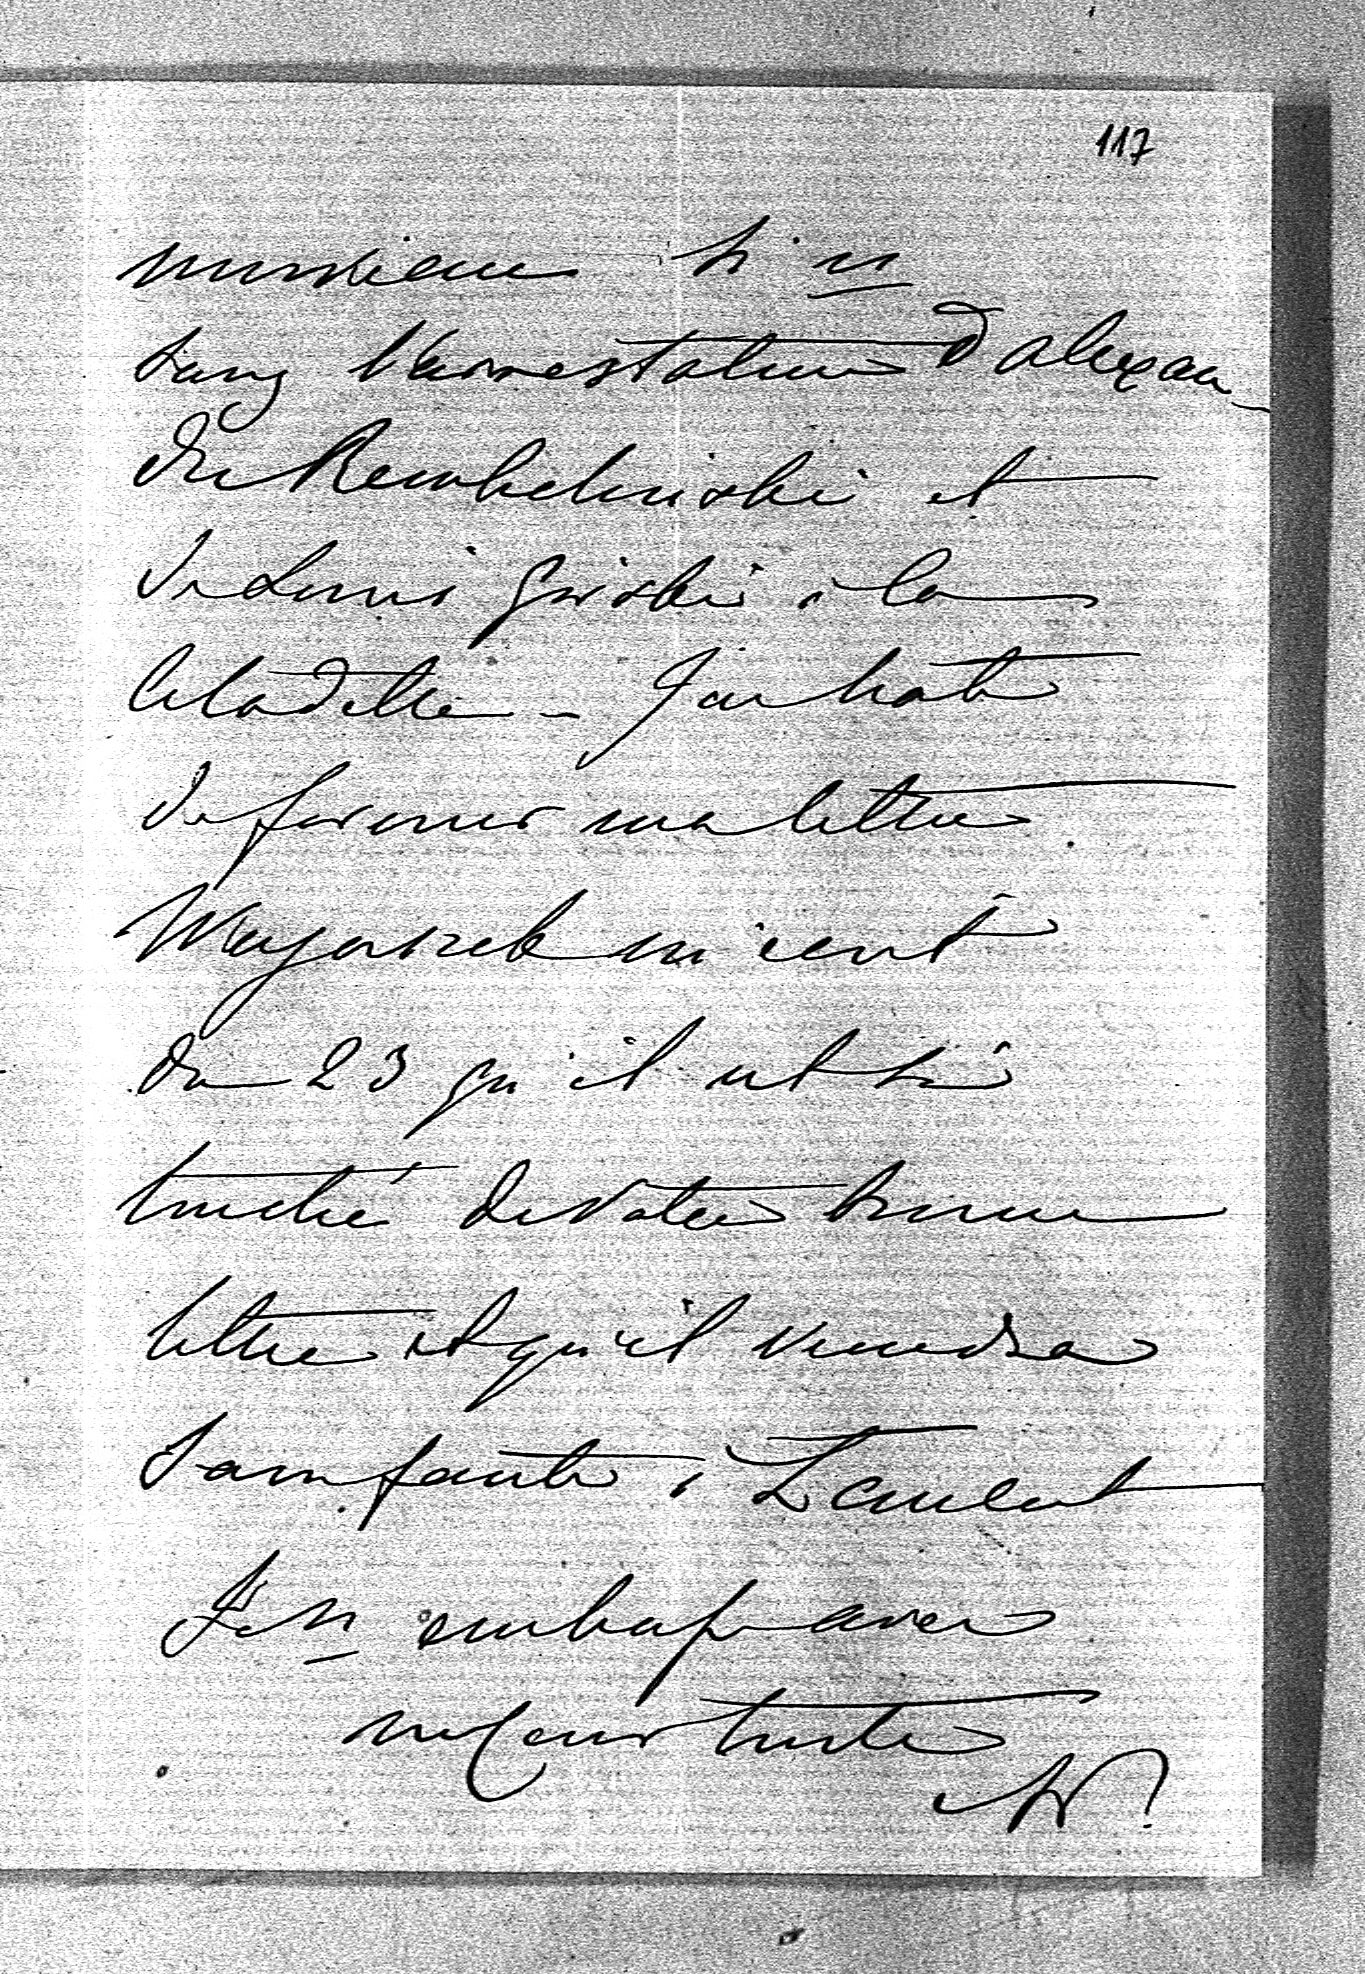 117
monsieur
sang l'arrestation d'alexan-
dre Rembielinski et
de Louis Gorski à la
Citadelle – J'ai hate
de fermer ma lettre
Wayorsek m'écrit
du 23 qu'il est très
touché de votre bonne
lettre et qu'il viendra
sans faute à
Je v embrasse avec
un cœur triste